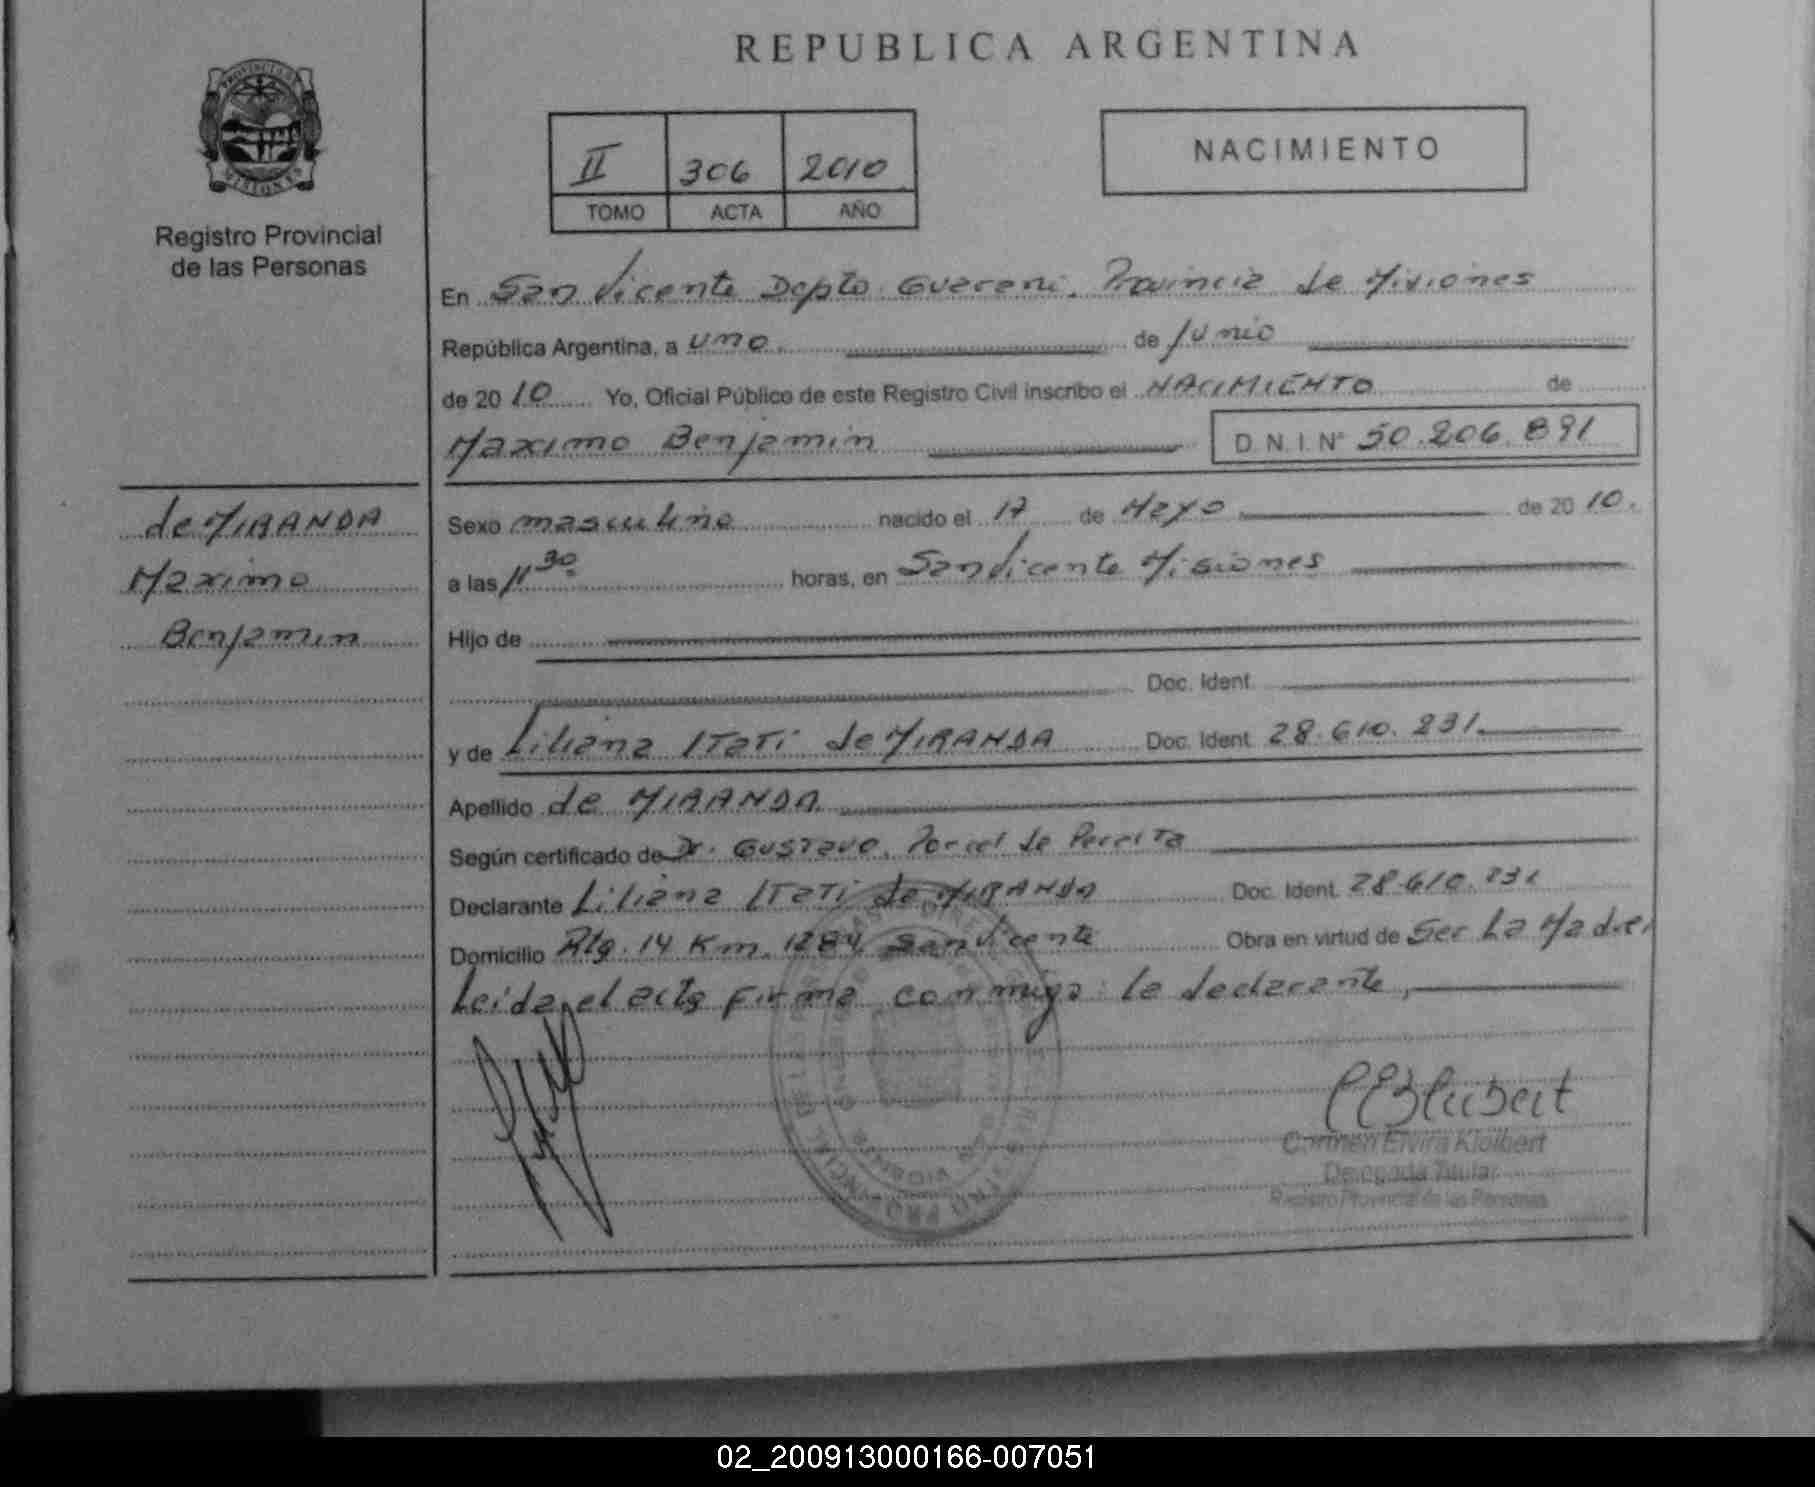 REPUBLICA ARGENTINA
PROVINCIA DE
MISIONES
Registro Provincial
de las Personas
II 306 2010
TOMO ACTA AÑO
NACIMIENTO
En San Vicente Depto Guarani, Provincia de Misiones
República Argentina, a uno de Junio
de 2010 Yo, Oficial Público de este Registro Civil inscribo el NACIMIENTO de
Maximo Benjamin D.N.I. Nº 50.206.891
de MIRANDA
Maximo
Benjamin
Sexo masculino nacido el 17 de Mayo de 2010.
a las 11 30 horas, en San Vicente Misiones
Hijo de
Doc. Ident.
y de Liliana Itati de MIRANDA Doc. Ident. 28.610.231
Apellido de MIRANDA
Según certificado de Dr. Gustavo, Porcel de Peralta
Declarante Liliana Itati de MIRANDA Doc. Ident. 28.610.231
Domicilio Rta. 14 Km. 1284 San Vicente Obra en virtud de Ser La Madre,
Leida el acta firma conmigo la declarante,
Carmen Elvira Kloibert
Delegada Titular
Registro Provincial de las Personas
02_200913000166-007051